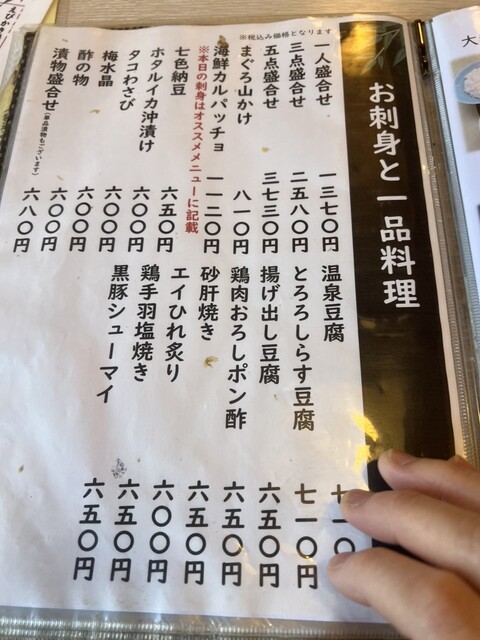 お刺身と一品料理
※税込み価格となります
一人盛合せ 一三七〇円
三点盛合せ 二五八〇円
五点盛合せ 三七三〇円
まぐろ山かけ 八一〇円
海鮮カルパッチョ 一一二〇円
※本日の刺身はオススメメニューに記載
七色納豆 六五〇円
ホタルイカ沖漬け 六〇〇円
タコわさび 六〇〇円
梅水晶 六〇〇円
酢の物 六〇〇円
漬物盛合せ(単品漬物もございます) 六八〇円
温泉豆腐 七一〇
とろろしらす豆腐 七一〇円
揚げ出し豆腐 六五〇円
鶏肉おろしポン酢 六五〇円
砂肝焼き 六五〇円
エイひれ炙り 六〇〇円
鶏手羽塩焼き 六五〇円
黒豚シューマイ 六五〇円
大